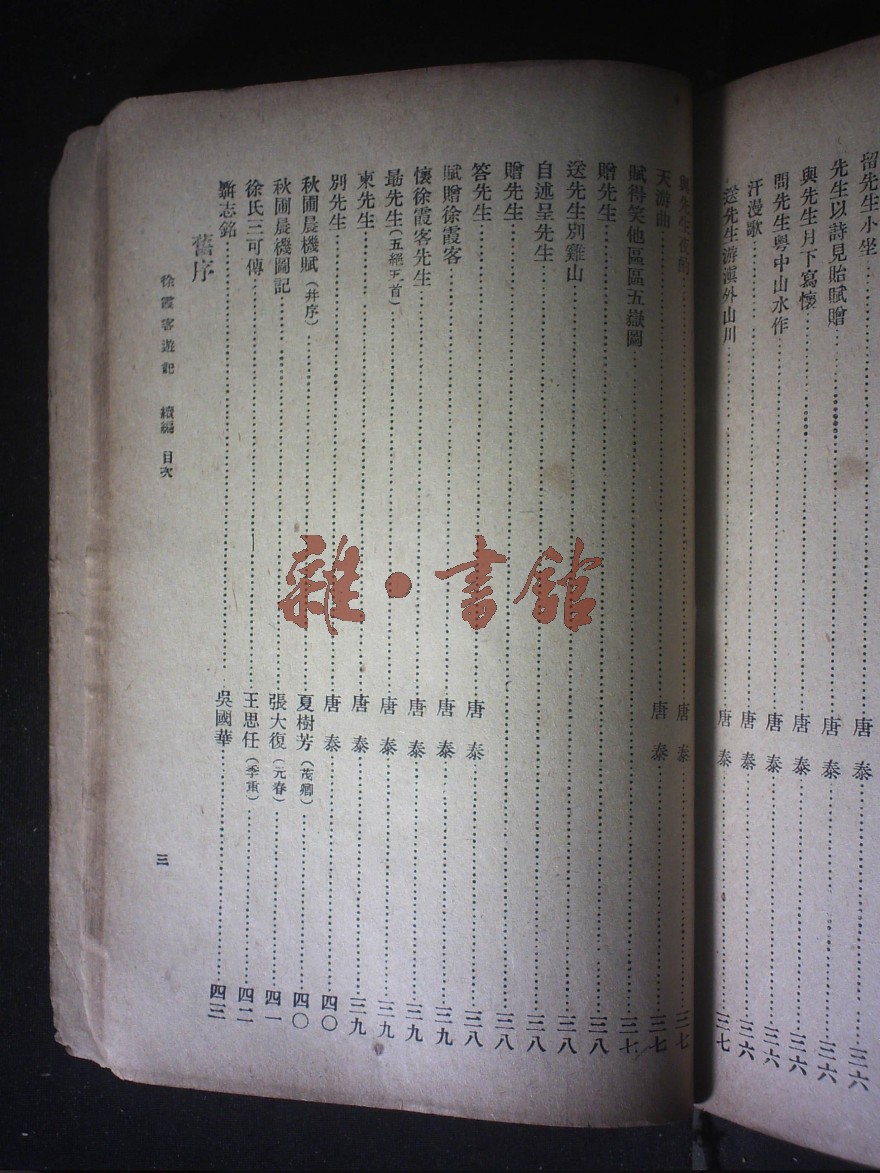 留先生小坐 唐泰 三六
先生以詩見貽賦贈 唐泰 三六
與先生月下寫懷 唐泰 三六
問先生粵中山水作 唐泰 三六
汗漫歌 唐泰 三六
送先生游滇外山川 唐泰 三七
與先生夜酌 唐泰 三七
天游曲 唐泰 三七
賦得笑他區區五嶽圖 三七
贈先生 三八
送先生別雞山 三八
自述呈先生 三八
贈先生 三八
答先生 唐泰 三八
賦贈徐霞客 唐泰 三九
懷徐霞客先生 唐泰 三九
勗先生(五絕五首) 唐泰 三九
柬先生 唐泰 三九
別先生 唐泰 四〇
秋圃晨機賦(幷序) 夏樹芳(茂卿) 四〇
秋圃晨機圖記 張大復(元春) 四一
徐氏三可傳 王思任(季重) 四二
壙志銘 吳國華 四三
舊序
徐霞客遊記 續編 目次
三
雜·書館